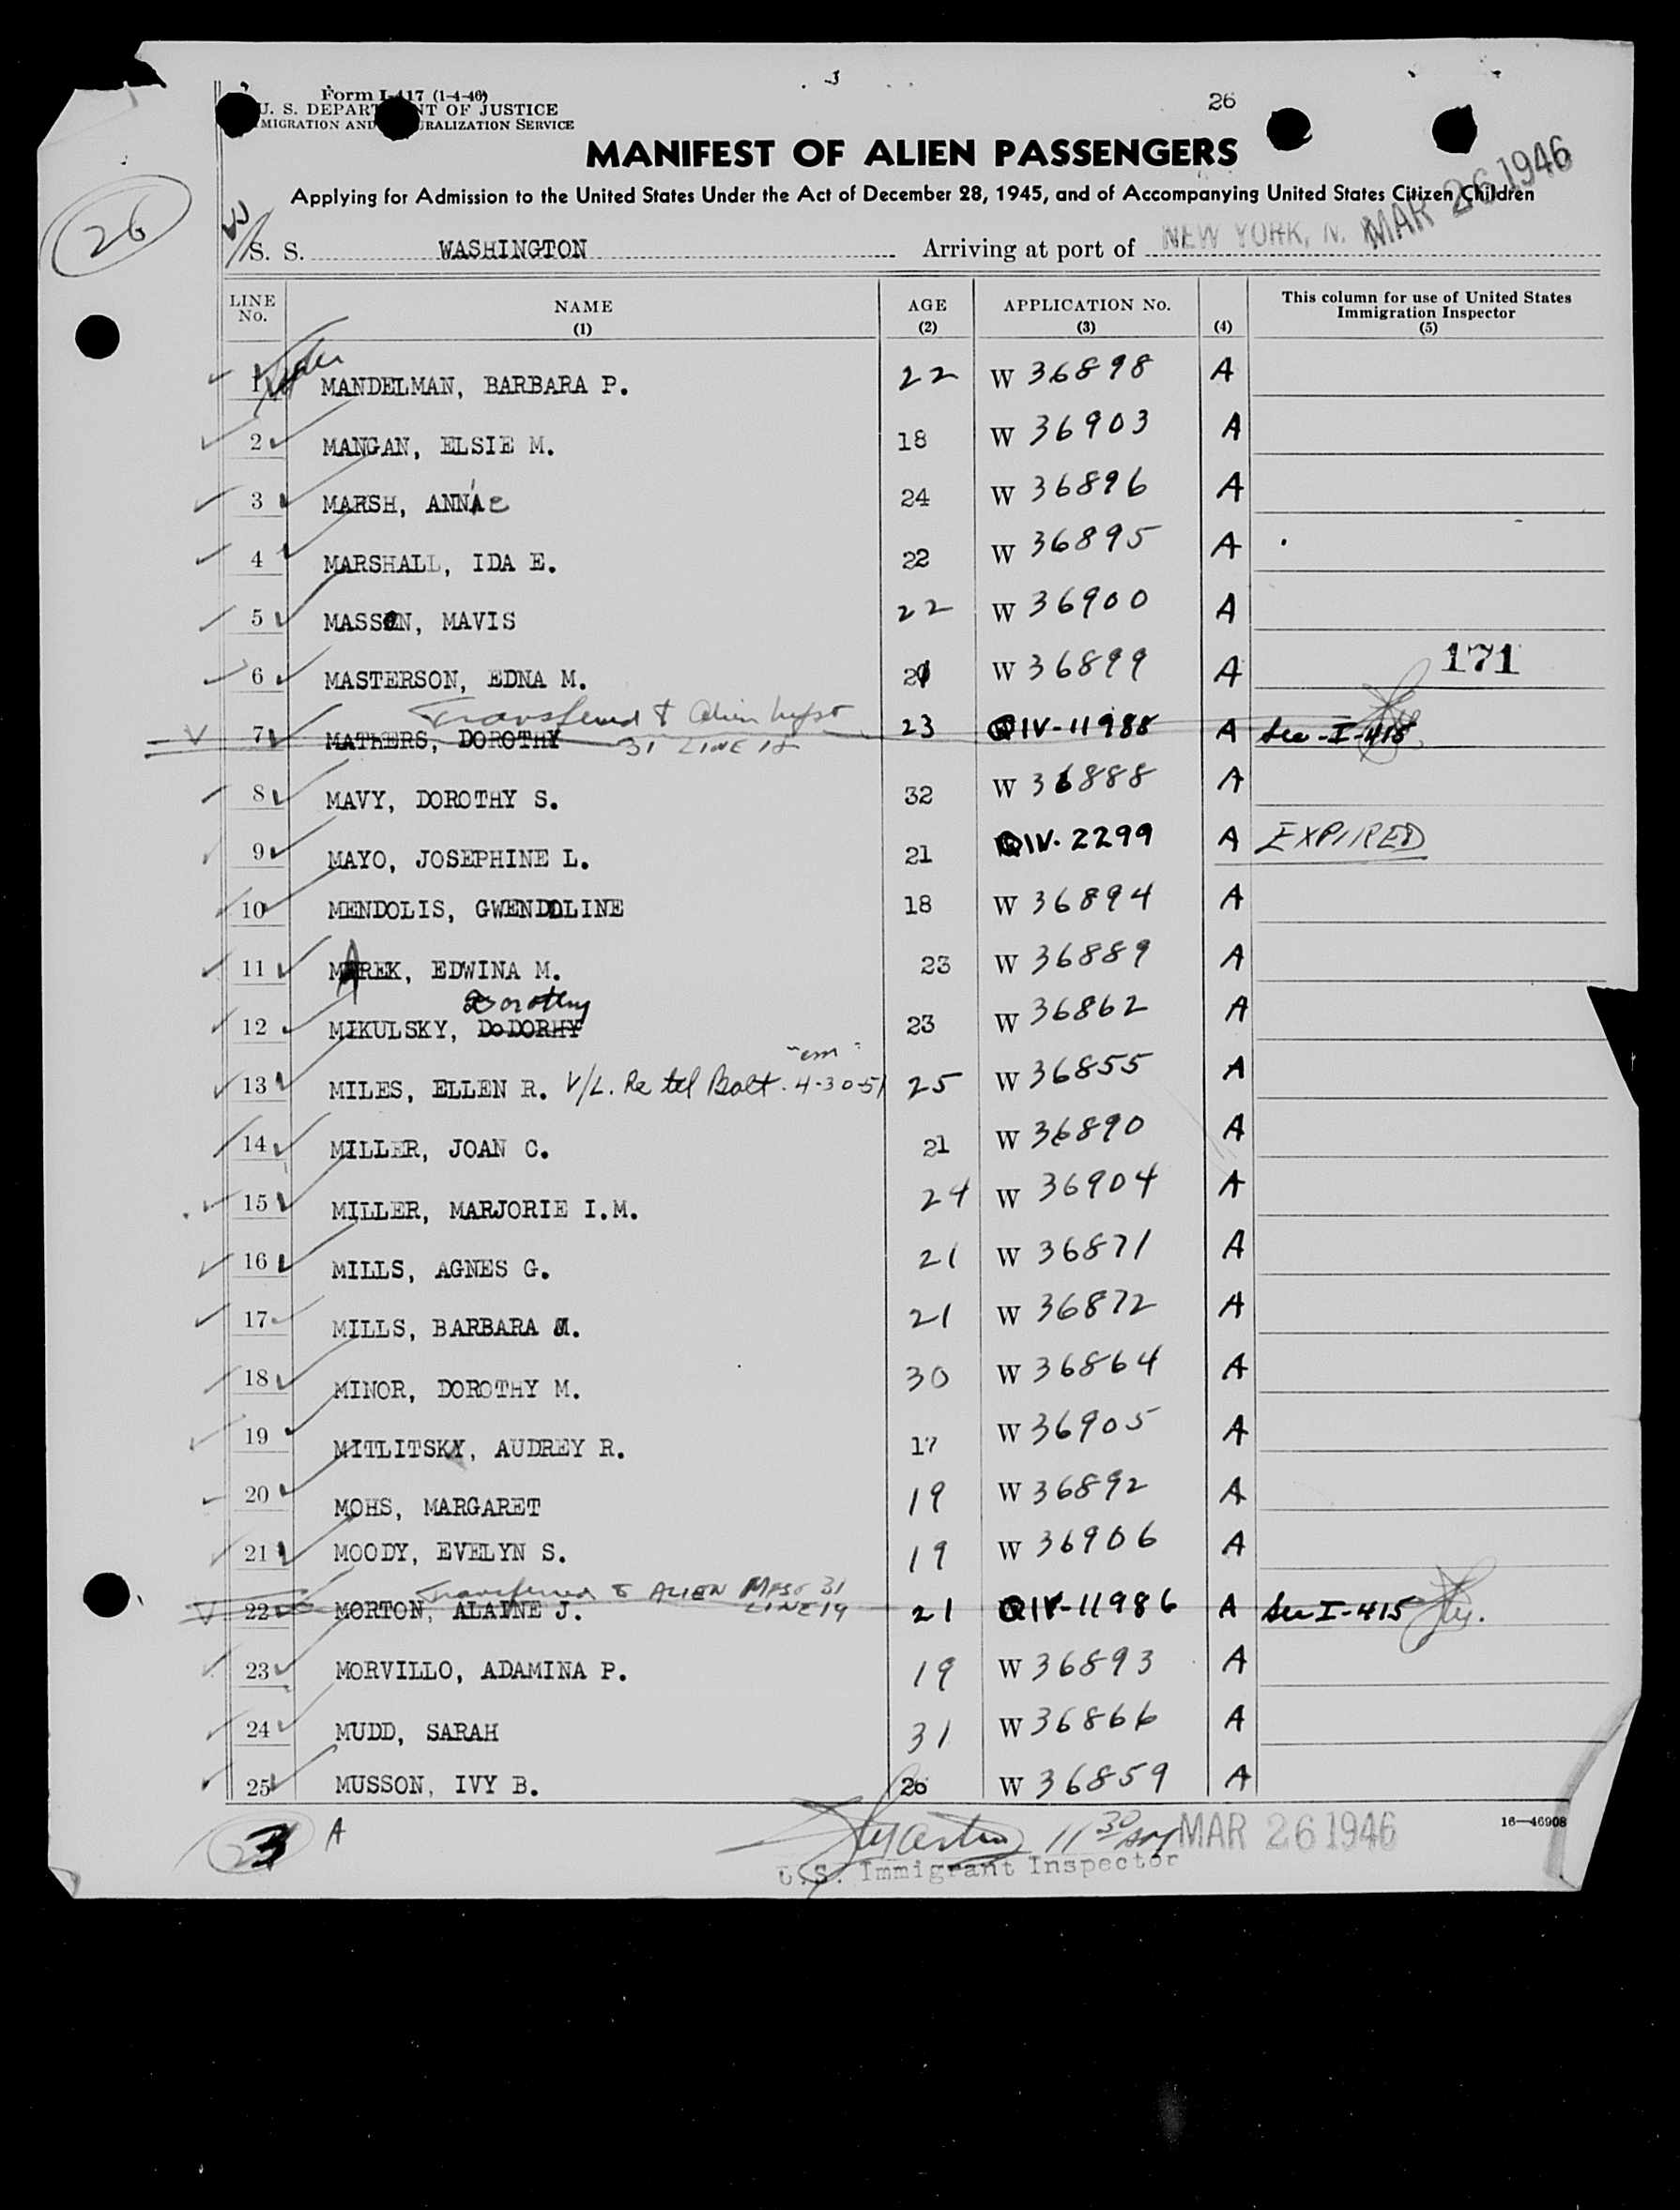 3
26
Form I-417 (1-4-46)
U. S. DEPARTMENT OF JUSTICE
IMMIGRATION AND NATURALIZATION SERVICE
MANIFEST OF ALIEN PASSENGERS
MAR 26 1946
Applying for Admission to the United States Under the Act of December 28, 1945, and of Accompanying United States Citizen Children
26
S. S. WASHINGTON Arriving at port of NEW YORK, N.
LINE No. NAME (1) AGE (2) APPLICATION No. (3) (4) This column for use of United States Immigration Inspector (5)
1 MANDELMAN, BARBARA P. 22 W 36898 A
2 MANGAN, ELSIE M. 18 W 36903 A
3 MARSH, ANNIE 24 W 36896 A
4 MARSHALL, IDA E. 22 W 36895 A
5 MASSON, MAVIS 22 W 36900 A
171
6 MASTERSON, EDNA M. 21 W 36899 A
Transferred to Alien Mfst
7 MATHERS, DOROTHY 31 LINE 18 23 QIV-11988 A See-I-415
8 MAVY, DOROTHY S. 32 W 36888 A
9 MAYO, JOSEPHINE L. 21 QIV-2299 A EXPIRED
10 MENDOLIS, GWENDOLINE 18 W 36894 A
11 MAREK, EDWINA M. 23 W 36889 A
Dorothy
12 MIKULSKY, DoDORHY 23 W 36862 A
13 MILES, ELLEN R. V/L. Re tel Balt. 4-30-51 "em" 25 W 36855 A
14 MILLER, JOAN C. 21 W 36890 A
15 MILLER, MARJORIE I.M. 24 W 36904 A
16 MILLS, AGNES G. 21 W 36871 A
17 MILLS, BARBARA M. 21 W 36872 A
18 MINOR, DOROTHY M. 30 W 36864 A
19 MITLITSKY, AUDREY R. 17 W 36905 A
20 MOHS, MARGARET 19 W 36892 A
21 MOODY, EVELYN S. 19 W 36906 A
Transferred to ALIEN Mfst 31
22 MORTON, ALAINE J. LINE 19 21 QIV-11986 A See I-415
23 MORVILLO, ADAMINA P. 19 W 36893 A
24 MUDD, SARAH 31 W 36866 A
25 MUSSON, IVY B. 20 W 36859 A
A
11 30 AM MAR 26 1946
16—46908
U.S. Immigrant Inspector